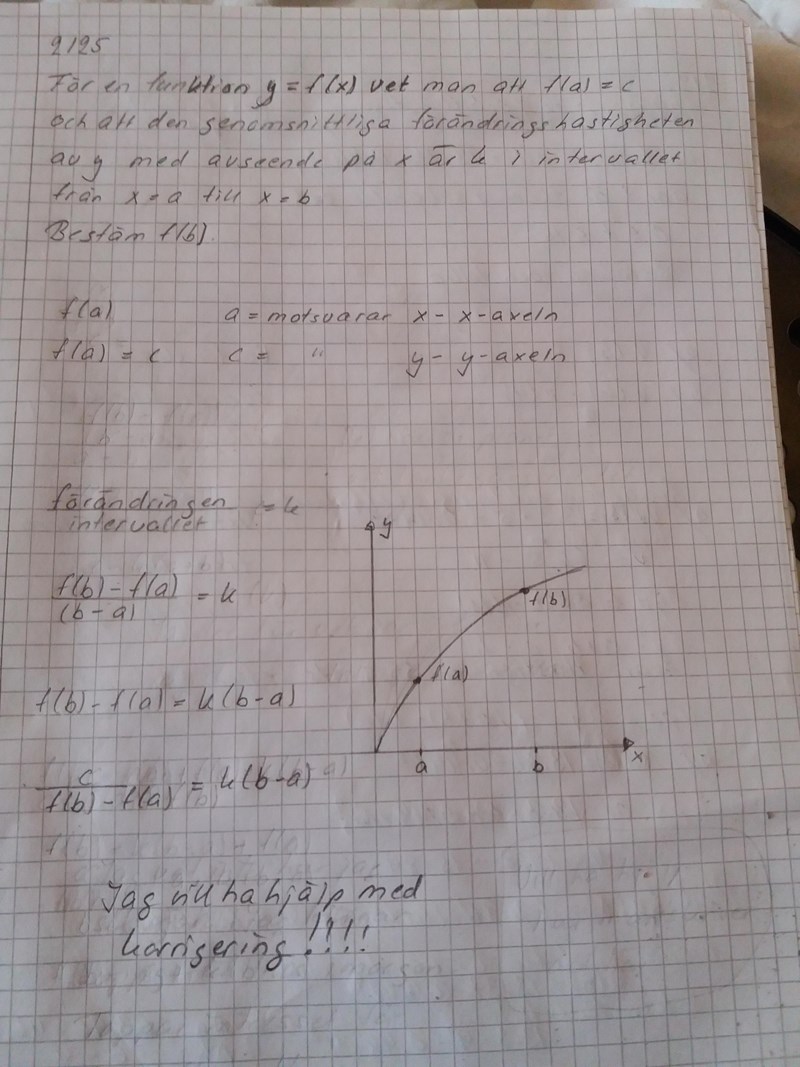 2125
För en funktion y = f(x) vet man att f(a) = c
och att den genomsnittliga förändringshastigheten
av y med avseende på x är k i intervallet
från x = a till x = b
Bestäm f(b).
f(a) a = motsvarar x - x-axeln
f(a) = c c = " y - y-axeln
förändringen
intervallet = k
y
f(b) - f(a)
(b - a) = k
f(b)
f(a)
f(b) - f(a) = k(b-a)
x
a b
c
f(b) - f(a) = k(b-a)
Jag vill ha hjälp med
korrigering !!!!